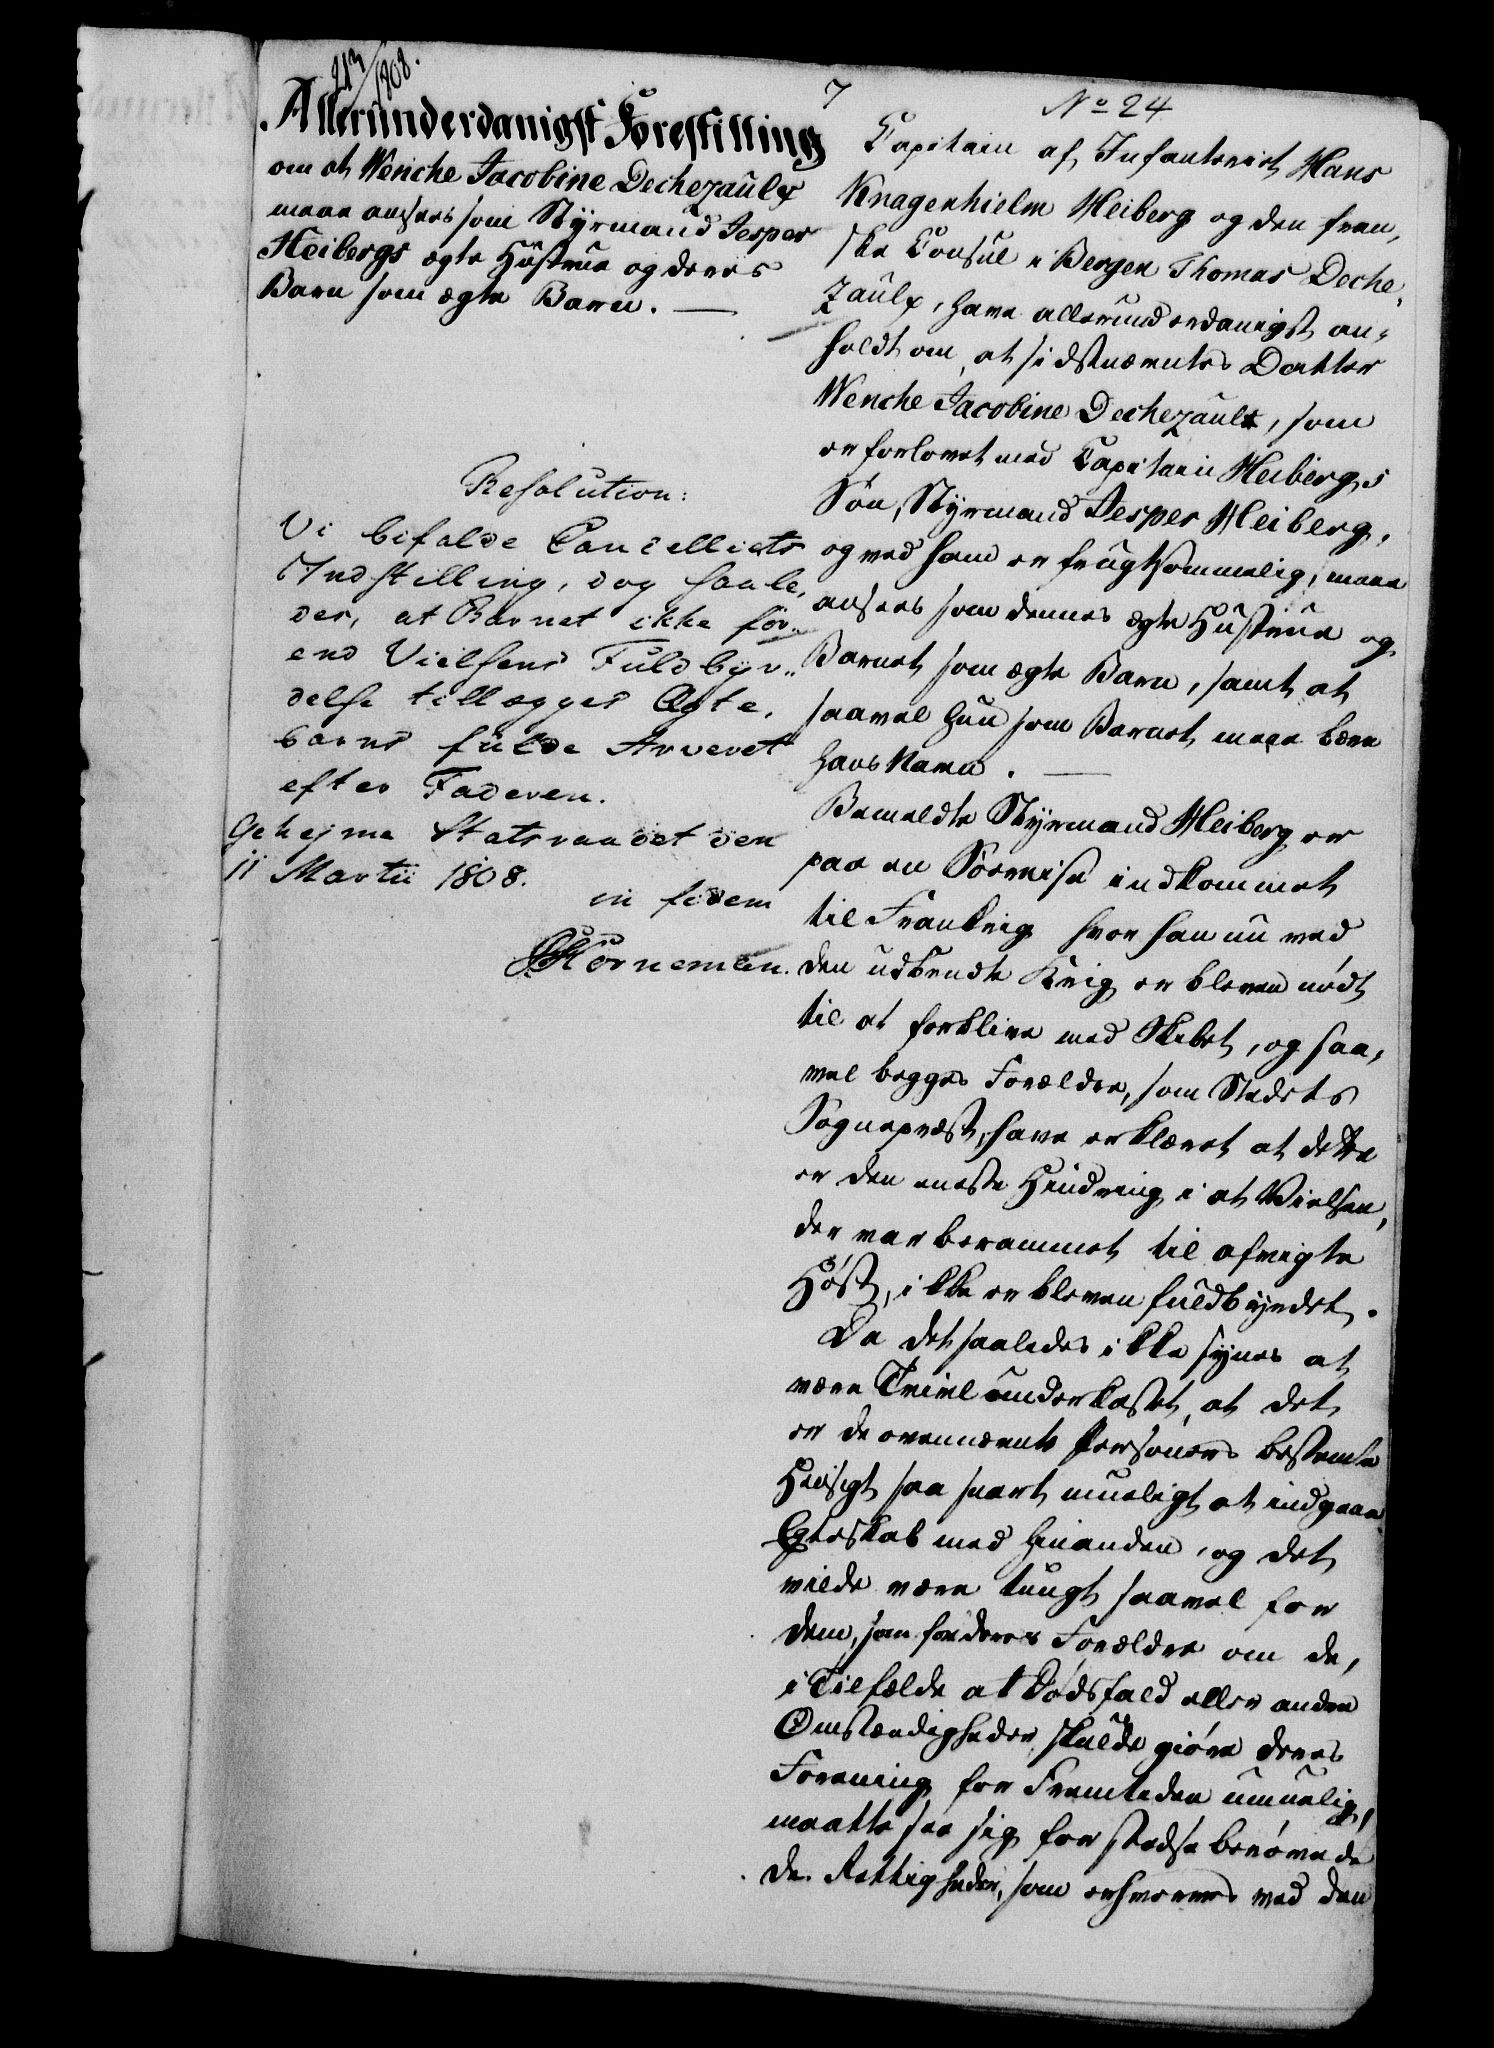 213/1808.
7
Allerunderdanigst Forestilling
om at Wenche Jacobine Dechezaulx
maae ansees som Styrmand Jesper
Heibergs ægte Hustrue og deres
Barn som ægte Barn. —
Resolution:
Vi bifalde Cancelliets
Indstilling, dog saale,
des, at Barnet ikke för„
end Vielsens Fuldbyr„
delse tillægges Ægte,
barns fulde Arveret
efter Faderen.
Geheime Statsraadet den
11 Martii 1808.
in fidem
Korneman.
No 24
Capitain af Infanteriet Hans
Knagenhielm Heiberg og den fran,
ske Consul i Bergen Thomas Deche,
zaulx, have allerunderdanigst an,
holdt om, at sidstnævntes Datter
Wenche Jacobine Dechezaulx, som
er forlovet med Capitain Heibergs
Søn, Styrmand Jesper Heiberg,
og ved ham er frugtsommelig, maae
ansees som dennes ægte Hustrue og
Barnet som ægte Barn, samt at
saavel hun som Barnet maae bære
hans Navn. —
Bemeldte Styrmand Heiberg er
paa en Søereise indkommet
til Frankrig hvor han nu ved
den udbrudte Krig er bleven nødt
til at forblive med Skibet, og saa,
vel begges Forældre, som Stedets
Sognepræst, have erklæret at dette
er den eneste Hindring i at Vielsen,
der var berammet til afvigte
Høst, ikke er bleven fuldbyrdet.
Da det saaledes ikke synes at
være Tvivl underkastet, at det
er de ovennævnte Personers bestemte
Hensigt saa snart mueligt at indgaae
Egteskab med hinanden, og det
vilde være tungt saavel for
dem, som for deres Forældre om de,
i Tilfælde at Dødsfald eller andre
Omstændigheder skulde giøre deres
Forening for Fremtiden umuelig,
maatte see sig for stedse berøvede
de Rettigheder, som erhverves ved den